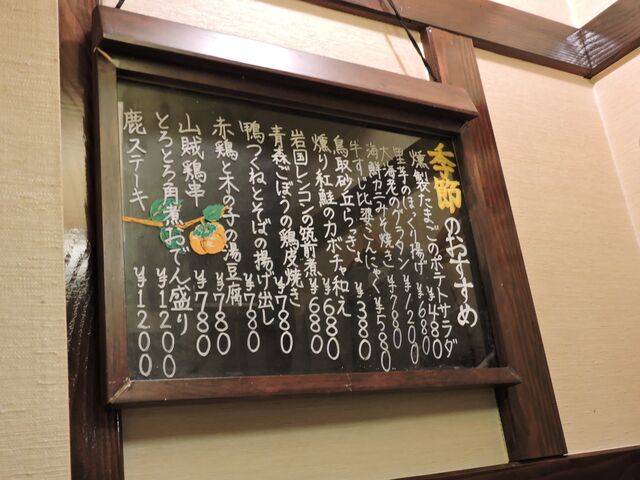 季節のおすすめ
燻製たまごのポテトサラダ ¥480
里芋のほっくり揚げ ¥680
大海老のグラタン ¥1200
海鮮カニみそ焼き ¥780
牛すじ比婆こんにゃく ¥580
鳥取砂丘らっきょ ¥380
燻り紅鮭のカボチャ和え ¥680
岩国レンコンの筑前煮 ¥680
青森ごぼうの鶏皮焼き ¥780
鴨つくねとそばの揚げ出し ¥780
赤鶏と木の子の湯豆腐 ¥780
山賊鶏串 ¥780
とろとろ角煮おでん盛り ¥1200
鹿ステーキ ¥1200